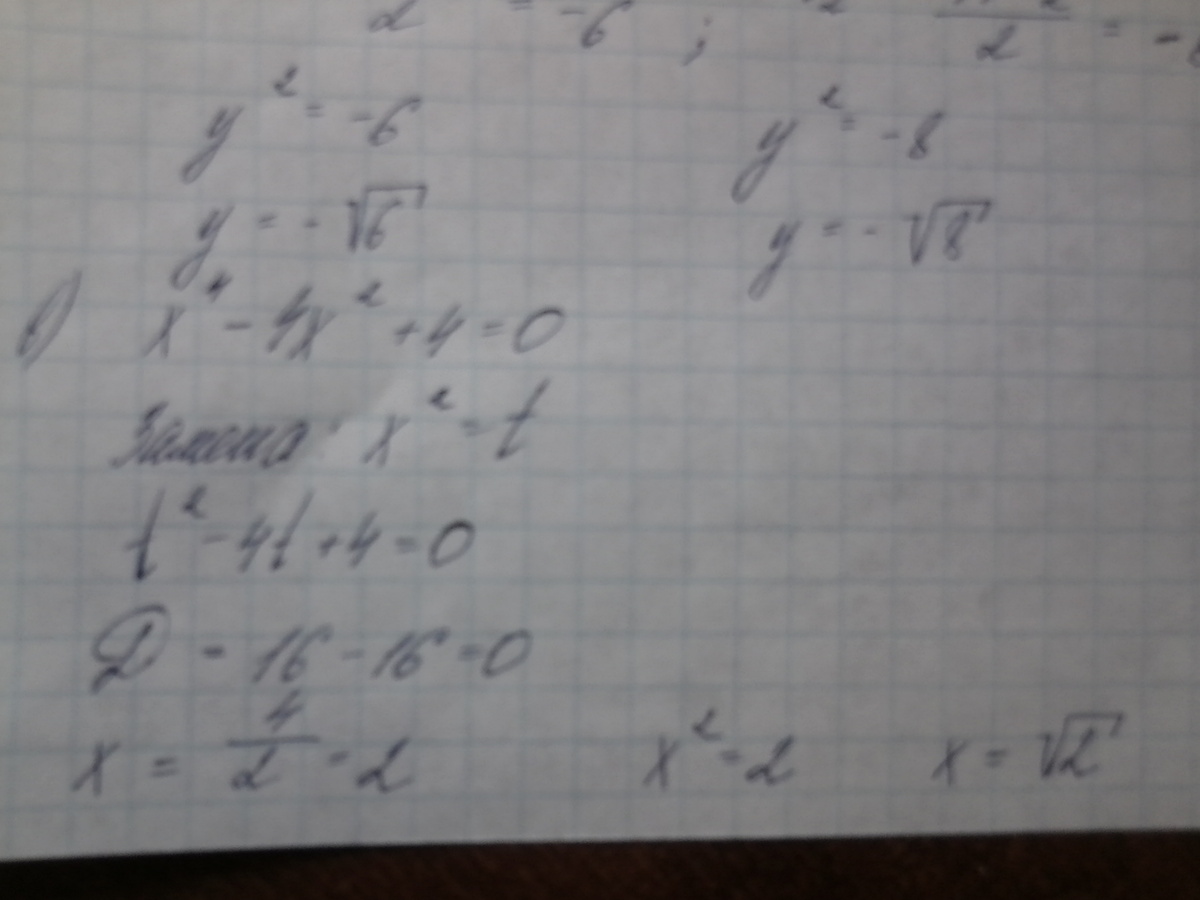 2 = -6 ; 2 = -8
y² = -6 y² = -8
y = -√6 y = -√8
в) x⁴ - 4x² + 4 = 0
Замена: x² = t
t² - 4t + 4 = 0
D = 16 - 16 = 0
x = 4/2 = 2 x² = 2 x = √2